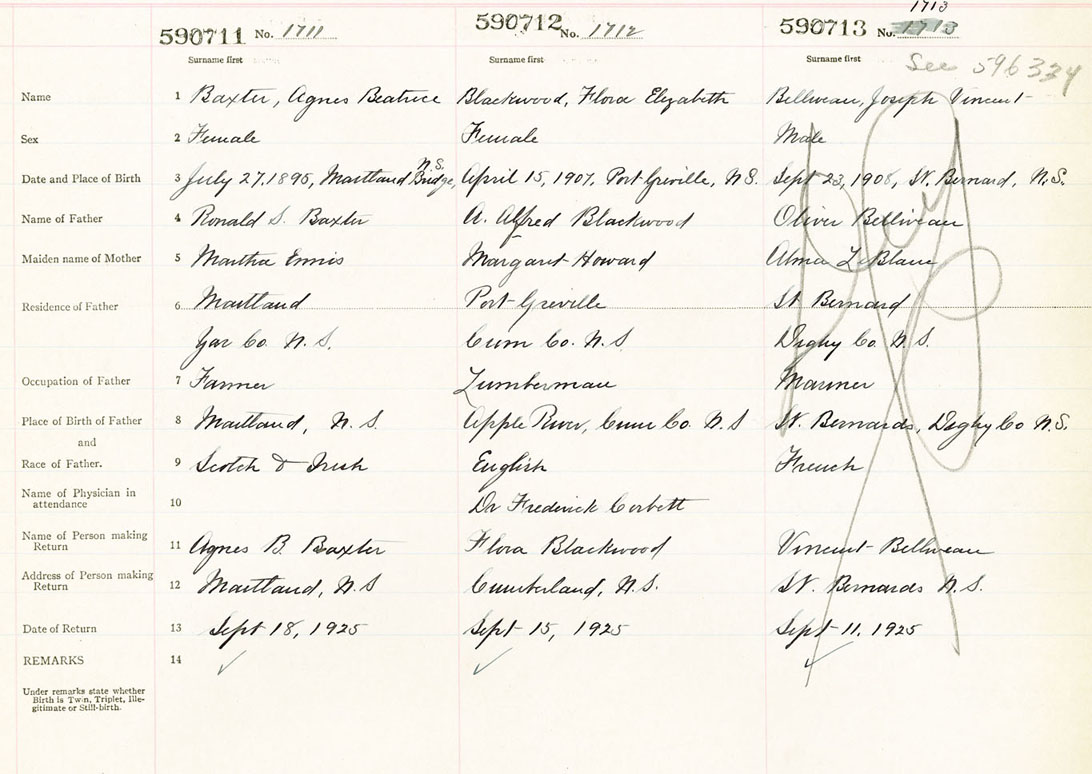 1713
590711 No. 1711 590712 No. 1712 590713 No. 1713
Surname first Surname first Surname first See 596334
Name 1 Baxter, Agnes Beatrice Blackwood, Flora Elizabeth Belliveau, Joseph Vincent
Sex 2 Female Female Male
N.S.
Date and Place of Birth 3 July 27, 1895, Maitland Bridge, April 15, 1907, Port Greville, N.S. Sept 23, 1908, St. Bernard, N.S.
Name of Father 4 Ronald S. Baxter A. Alfred Blackwood Oliver Belliveau
Maiden name of Mother 5 Martha Ennis Margaret Howard Alma LeBlanc
Residence of Father 6 Maitland Port Greville St Bernard
Yar Co. N.S. Cum Co. N.S Digby Co. N.S.
Occupation of Father 7 Farmer Lumberman Mariner
Place of Birth of Father 8 Maitland, N.S. Apple River, Cum Co. N.S St. Bernards, Digby Co N.S.
and
Race of Father. 9 Scotch & Irish English French
Name of Physician in
attendance 10 Dr Frederick Corbett
Name of Person making
Return 11 Agnes B. Baxter Flora Blackwood Vincent Belliveau
Address of Person making
Return 12 Maitland, N.S Cumberland, N.S. St. Bernards N.S.
Date of Return 13 Sept 18, 1925 Sept 15, 1925 Sept 11, 1925
REMARKS 14
Under remarks state whether
Birth is Twin, Triplet, Ille-
gitimate or Still-birth.